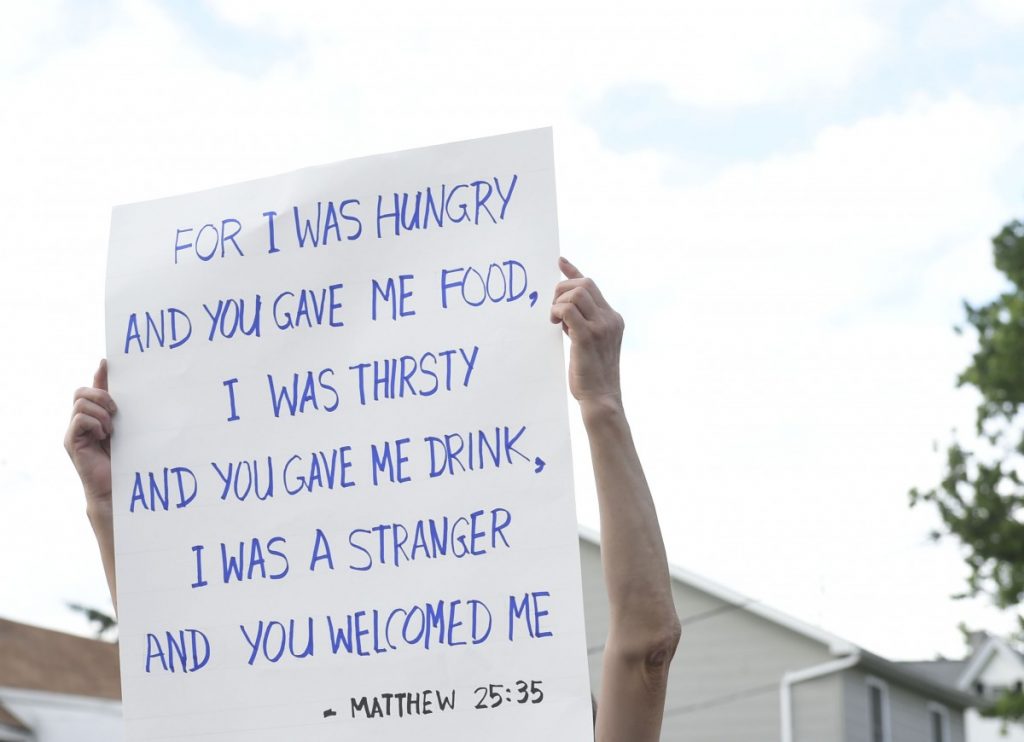 FOR I WAS HUNGRY
AND YOU GAVE ME FOOD,
I WAS THIRSTY
AND YOU GAVE ME DRINK,
I WAS A STRANGER
AND YOU WELCOMED ME
- MATTHEW 25:35